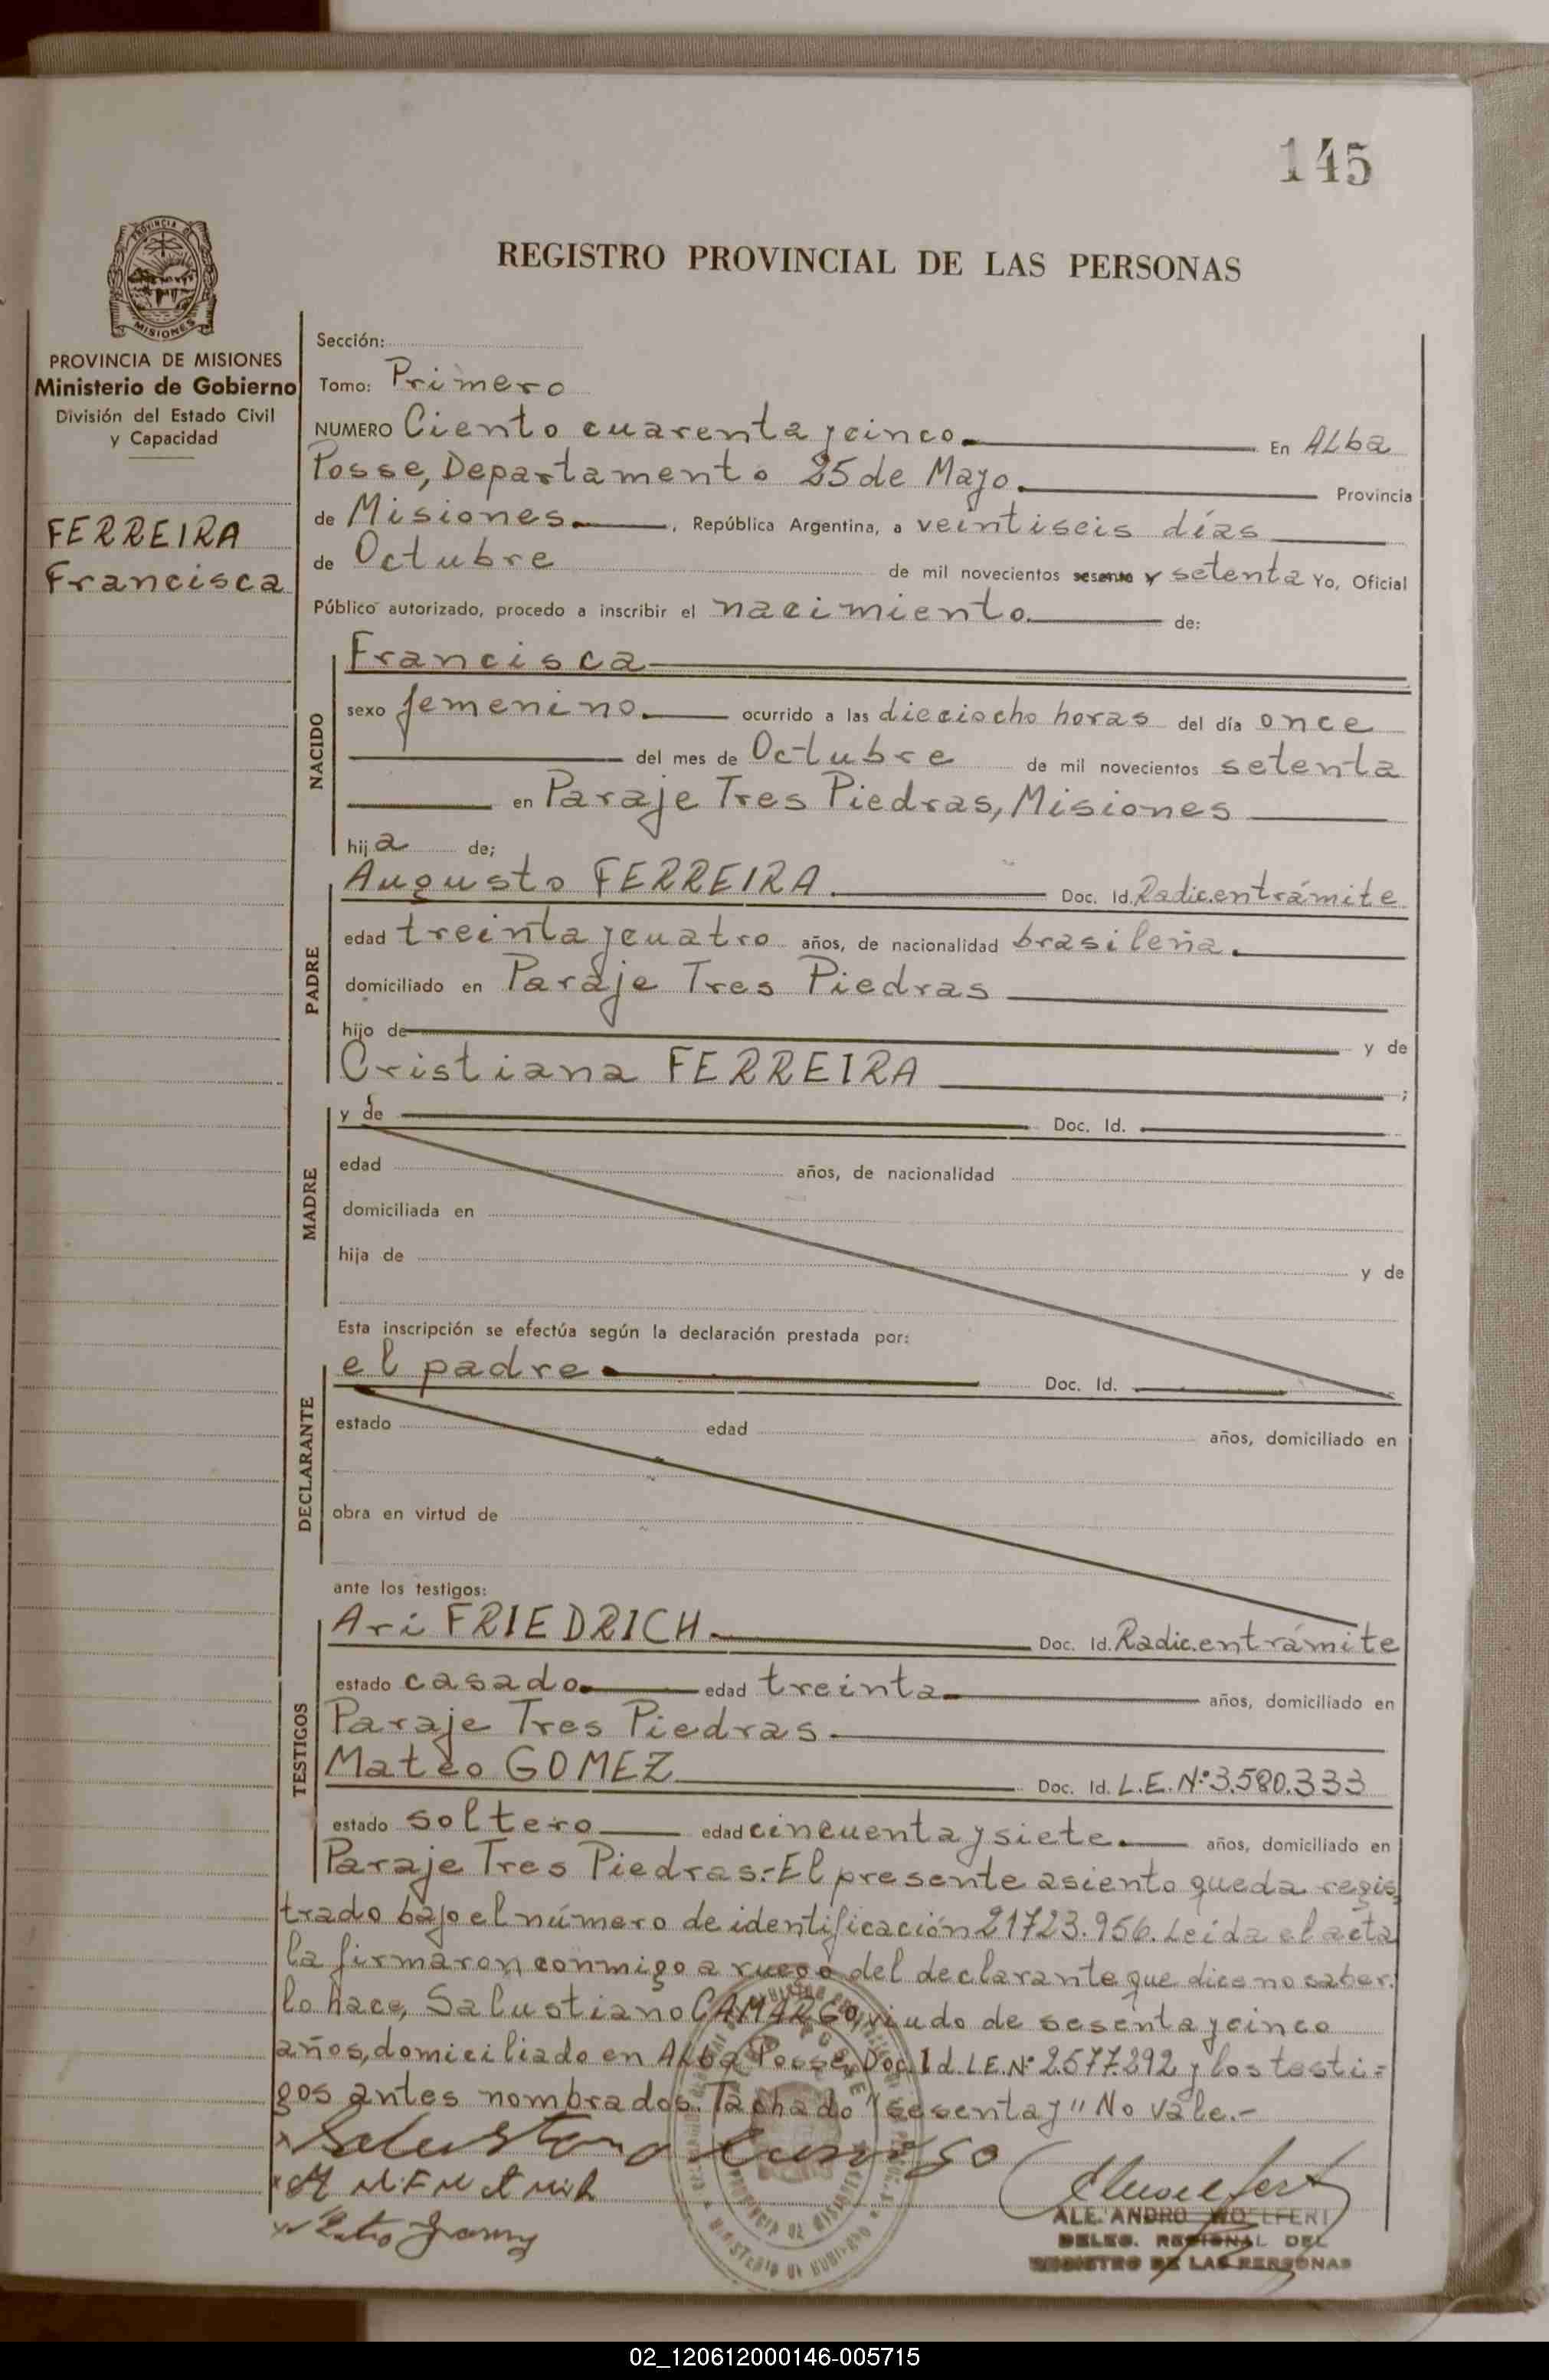 145
PROVINCIA DE
MISIONES
REGISTRO PROVINCIAL DE LAS PERSONAS
PROVINCIA DE MISIONES
Ministerio de Gobierno
División del Estado Civil
y Capacidad
FERREIRA
Francisca
Sección:
Tomo: Primero
NUMERO Ciento cuarenta y cinco. En ALba
Posse, Departamento 25 de Mayo. Provincia
de Misiones. , República Argentina, a veintiseis días
de Octubre de mil novecientos sesenta y setenta Yo, Oficial
Público autorizado, procedo a inscribir el nacimiento de:
NACIDO
Francisca
sexo femenino. ocurrido a las dieciocho horas del día once
del mes de Octubre de mil novecientos setenta
en Paraje Tres Piedras, Misiones
hija de;
PADRE
Augusto FERREIRA. Doc. Id. Radic.entrámite
edad treinta y cuatro años, de nacionalidad brasileña.
domiciliado en Paraje Tres Piedras
hijo de y de
Cristiana FERREIRA ;
MADRE
y de Doc. Id.
edad años, de nacionalidad
domiciliada en
hija de y de
Esta inscripción se efectúa según la declaración prestada por:
DECLARANTE
el padre. Doc. Id.
estado edad años, domiciliado en
obra en virtud de
ante los testigos:
TESTIGOS
Ari FRIEDRICH. Doc. Id. Radic.entrámite
estado casado. edad treinta. años, domiciliado en
Paraje Tres Piedras.
Mateo GOMEZ Doc. Id. L.E.Nº3.580.333
estado soltero edad cincuenta y siete. años, domiciliado en
Paraje Tres Piedras.-El presente asiento queda regis
trado bajo el número de identificación 21723.956. Leida el acta
la firmaron conmigo a ruego del declarante que dice no saber.
lo hace, Salustiano CAMARGO, viudo de sesenta y cinco
años, domiciliado en Alba Posse, Doc. Id. L.E.Nº 2.577.292 y los testi=
gos antes nombrados. Tachado "sesenta y" No vale.-
ALEJANDRO WOLFERT
DELEG. REGIONAL DEL
REGISTRO DE LAS PERSONAS
02_120612000146-005715